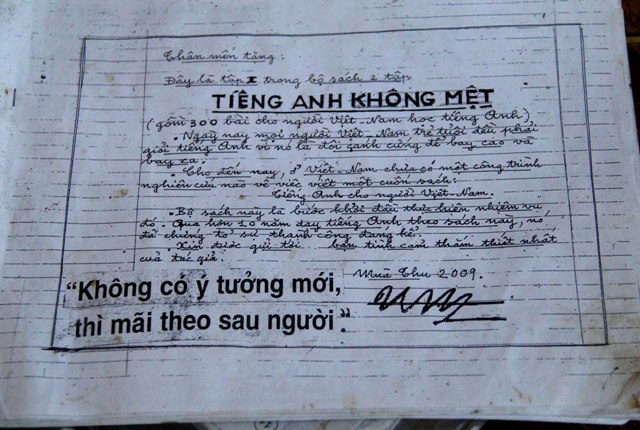 Thân mến tặng:
Đây là tập I trong bộ sách 2 tập
TIẾNG ANH KHÔNG MỆT
(gồm 300 bài cho người Việt-Nam học tiếng Anh)
. Ngày nay mọi người Việt-Nam trẻ tuổi đều phải
giỏi tiếng Anh vì nó là đôi cánh cứng để bay cao và
bay xa.
. Cho đến nay, ở Việt-Nam chưa có một công trình
nghiên cứu nào về việc viết một cuốn sách:
Tiếng Anh cho người Việt-Nam.
. Bộ sách này là bước khởi đầu thực hiện nhiệm vụ
đó. Qua hơn 10 năm dạy tiếng Anh theo sách này, nó
đã chứng tỏ sự thành công đáng kể.
. Xin được gửi tới bạn tình cảm thắm thiết nhất
của tác giả.
Mùa Thu 2009.
"Không có ý tưởng mới,
thì mãi theo sau người".